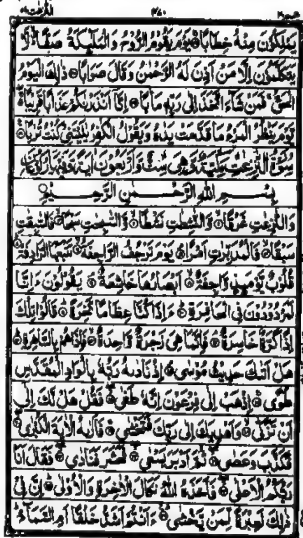 النزعت
عم ٣٠
يَمْلِكُونَ مِنْهُ خِطَابًا يَوْمَ يَقُومُ الرُّوْحُ وَالْمَلٰٓئِكَةُ صَفًّا لَّا
يَتَكَلَّمُوْنَ اِلَّا مَنْ اَذِنَ لَهُ الرَّحْمٰنُ وَقَالَ صَوَابًا ذٰلِكَ الْيَوْمُ
الْحَقُّ فَمَنْ شَآءَ اتَّخَذَ اِلٰى رَبِّهٖ مَاٰبًا اِنَّآ اَنْذَرْنٰكُمْ عَذَابًا قَرِيْبًا
يَّوْمَ يَنْظُرُ الْمَرْءُ مَا قَدَّمَتْ يَدٰهُ وَيَقُوْلُ الْكٰفِرُ يٰلَيْتَنِيْ كُنْتُ تُرٰبًا
سُوْرَةُ النّٰزِعٰتِ مَكِّيَّةٌ وَّهِيَ سِتٌّ وَّاَرْبَعُوْنَ اٰيَةً وَّفِيْهَا رُكُوْعَانِ
بِسْمِ اللّٰهِ الرَّحْمٰنِ الرَّحِيْمِ
وَالنّٰزِعٰتِ غَرْقًا وَّالنّٰشِطٰتِ نَشْطًا وَّالسّٰبِحٰتِ سَبْحًا فَالسّٰبِقٰتِ
سَبْقًا فَالْمُدَبِّرٰتِ اَمْرًا يَوْمَ تَرْجُفُ الرَّاجِفَةُ تَتْبَعُهَا الرَّادِفَةُ
قُلُوْبٌ يَّوْمَئِذٍ وَّاجِفَةٌ اَبْصَارُهَا خَاشِعَةٌ يَقُوْلُوْنَ ءَاِنَّا
لَمَرْدُوْدُوْنَ فِى الْحَافِرَةِ ءَاِذَا كُنَّا عِظَامًا نَّخِرَةً قَالُوْا تِلْكَ
اِذًا كَرَّةٌ خَاسِرَةٌ فَاِنَّمَا هِيَ زَجْرَةٌ وَّاحِدَةٌ فَاِذَا هُمْ بِالسَّاهِرَةِ
هَلْ اَتٰىكَ حَدِيْثُ مُوْسٰى اِذْ نَادٰىهُ رَبُّهٗ بِالْوَادِ الْمُقَدَّسِ
طُوًى اِذْهَبْ اِلٰى فِرْعَوْنَ اِنَّهٗ طَغٰى فَقُلْ هَلْ لَّكَ اِلٰٓى
اَنْ تَزَكّٰى وَاَهْدِيَكَ اِلٰى رَبِّكَ فَتَخْشٰى فَاَرٰىهُ الْاٰيَةَ الْكُبْرٰى
فَكَذَّبَ وَعَصٰى ثُمَّ اَدْبَرَ يَسْعٰى فَحَشَرَ فَنَادٰى فَقَالَ اَنَا
رَبُّكُمُ الْاَعْلٰى فَاَخَذَهُ اللّٰهُ نَكَالَ الْاٰخِرَةِ وَالْاُوْلٰى اِنَّ فِيْ
ذٰلِكَ لَعِبْرَةً لِّمَنْ يَّخْشٰى ءَاَنْتُمْ اَشَدُّ خَلْقًا اَمِ السَّمَآءُ